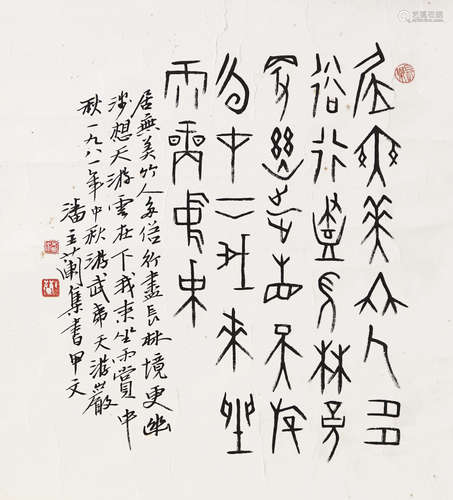 居無美竹人多
俗行盡長林境
更幽涉想天游
雲在下我來坐
雨賞中秋
居無美竹人多俗行盡長林境更幽
涉想天游雲在下我來坐雨賞中
秋一九八一年中秋游武夷天游巖
潘主蘭集書甲文